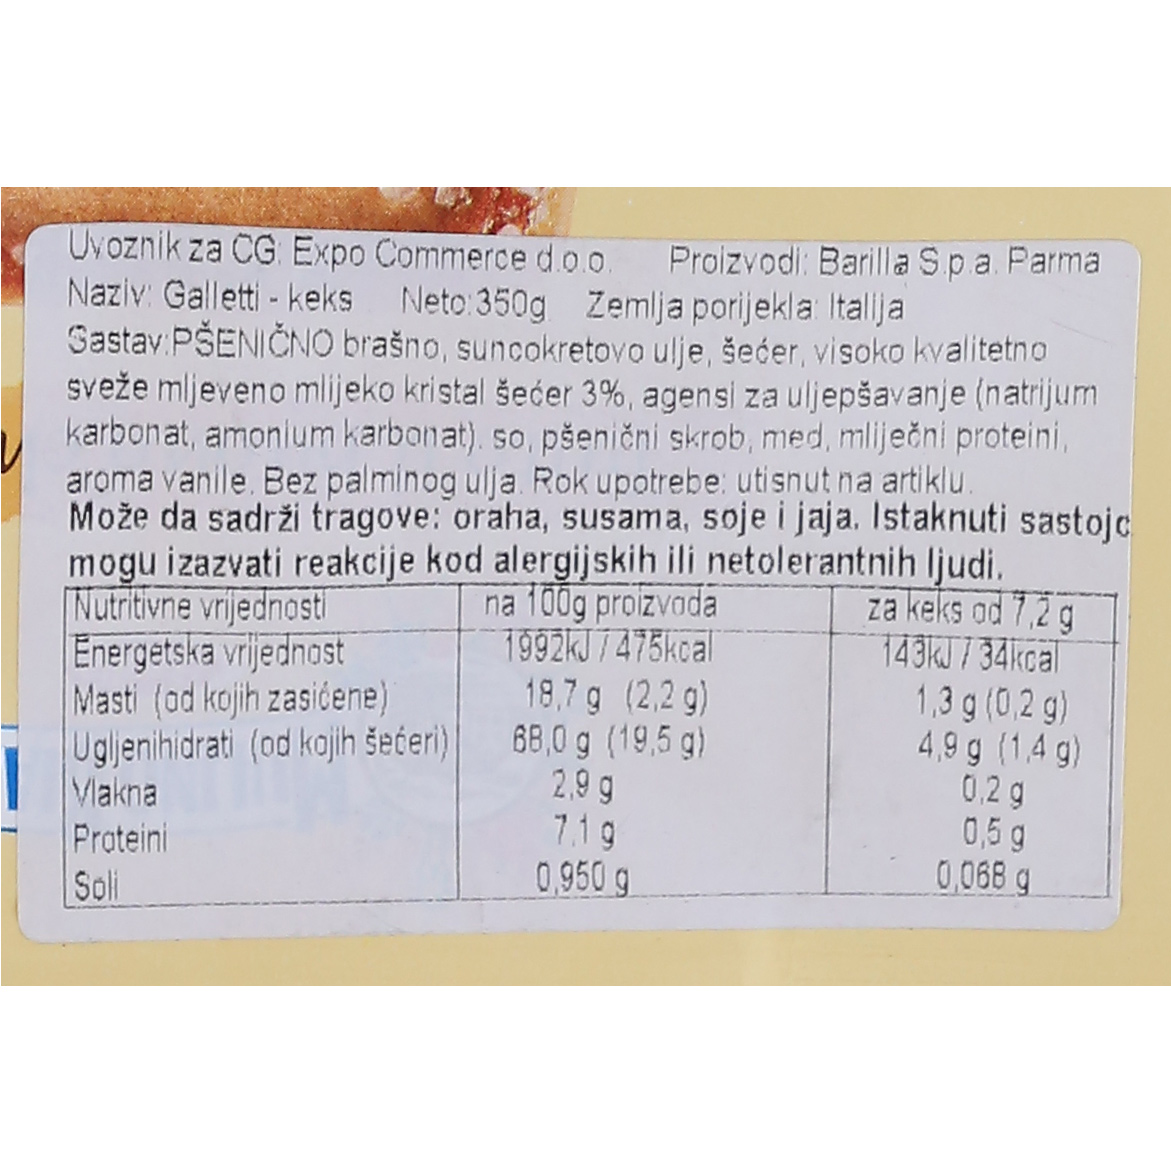 Uvoznik za CG: Expo Commerce d.o.o. Proizvodi: Barilla S.p.a. Parma
Naziv: Galletti - keks Neto:350g Zemlja porijekla: Italija
Sastav:PŠENIČNO brašno, suncokretovo ulje, šećer, visoko kvalitetno
sveže mljeveno mlijeko kristal šećer 3%, agensi za uljepšavanje (natrijum
karbonat, amonium karbonat). so, pšenični skrob, med, mliječni proteini,
aroma vanile. Bez palminog ulja. Rok upotrebe: utisnut na artiklu.
Može da sadrži tragove: oraha, susama, soje i jaja. Istaknuti sastojc
mogu izazvati reakcije kod alergijskih ili netolerantnih ljudi.
Nutritivne vrijednosti na 100g proizvoda za keks od 7,2 g
Energetska vrijednost 1992kJ / 475kcal 143kJ / 34kcal
Masti (od kojih zasićene) 18,7 g (2,2 g) 1,3 g (0,2 g)
Ugljenihidrati (od kojih šećeri) 68,0 g (19,5 g) 4,9 g (1,4 g)
Vlakna 2,9 g 0,2 g
Proteini 7,1 g 0,5 g
Soli 0,950 g 0,068 g